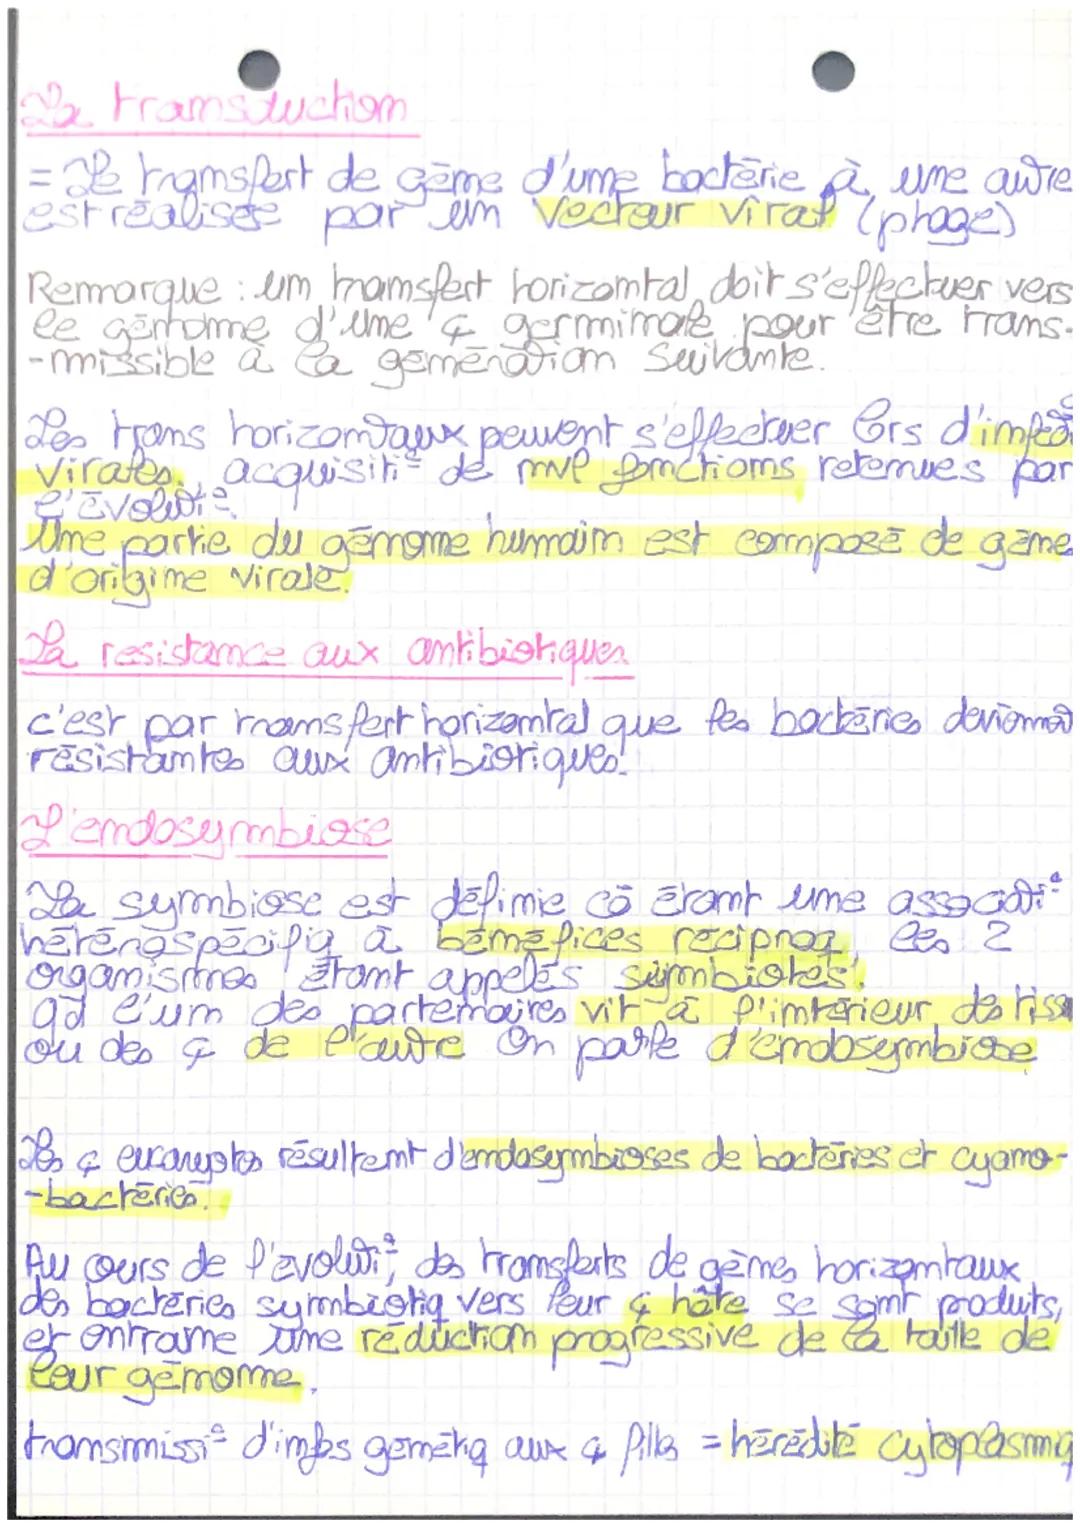 La transduction
= Le transfert de gène d'une bactérie à une autre
est réalisée par un vecteur viral (phage)
Remarque : un transfert horizontal doit s'effectuer vers
le génome d'une ç germinale pour être trans-
-missible à la génération suivante.
Les trans horizontaux peuvent s'effectuer lors d'infect
virales, acquisiti° de nvl fonctions retenues par
l'évoluti°.
Une partie du génome humain est composé de gène
d'origine virale.
La resistance aux antibiotiques
c'est par transfert horizontal que les bactéries deviennent
résistantes aux antibiotiques.
L'endosymbiose
La symbiose est définie cō étant une associati°
hétérospécifiq à bénéfices réciproq, les 2
organismes étant appelés symbiotes.
qd l'un des partenaires vit à l'intérieur des tiss
ou des ç de l'autre On parle d'endosymbiose
Les ç eucaryotes résultent d'endosymbioses de bactéries et cyano-
-bactéries.
Au cours de l'évoluti°, des transferts de gènes horizontaux
des bactéries symbiotiq vers leur ç hôte se sont produits,
et entraine une réduction progressive de la taille de
leur génome.
transmissi° d'infos génétiq aux ç filles = hérédité cytoplasmiq